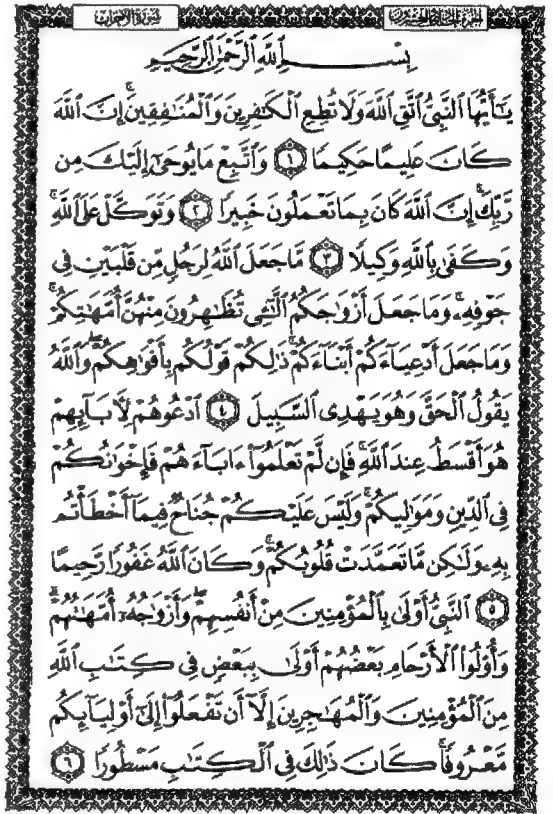 سُورَةُ الأَحْزَابِ
الجُزْءُ الحَادِي وَالعِشْرُونَ
بِسْمِ ٱللَّهِ ٱلرَّحْمَٰنِ ٱلرَّحِيمِ
يَٰٓأَيُّهَا ٱلنَّبِيُّ ٱتَّقِ ٱللَّهَ وَلَا تُطِعِ ٱلْكَٰفِرِينَ وَٱلْمُنَٰفِقِينَۗ إِنَّ ٱللَّهَ
كَانَ عَلِيمًا حَكِيمًا ١ وَٱتَّبِعْ مَا يُوحَىٰٓ إِلَيْكَ مِن
رَّبِّكَۚ إِنَّ ٱللَّهَ كَانَ بِمَا تَعْمَلُونَ خَبِيرًا ٢ وَتَوَكَّلْ عَلَى ٱللَّهِۚ
وَكَفَىٰ بِٱللَّهِ وَكِيلًا ٣ مَّا جَعَلَ ٱللَّهُ لِرَجُلٍ مِّن قَلْبَيْنِ فِى
جَوْفِهِۦۚ وَمَا جَعَلَ أَزْوَٰجَكُمُ ٱلَّٰٓـِٔى تُظَٰهِرُونَ مِنْهُنَّ أُمَّهَٰتِكُمْۚ
وَمَا جَعَلَ أَدْعِيَآءَكُمْ أَبْنَآءَكُمْۚ ذَٰلِكُمْ قَوْلُكُم بِأَفْوَٰهِكُمْۖ وَٱللَّهُ
يَقُولُ ٱلْحَقَّ وَهُوَ يَهْدِى ٱلسَّبِيلَ ٤ ٱدْعُوهُمْ لِأَبَآئِهِمْ
هُوَ أَقْسَطُ عِندَ ٱللَّهِۚ فَإِن لَّمْ تَعْلَمُوٓا۟ ءَابَآءَهُمْ فَإِخْوَٰنُكُمْ
فِى ٱلدِّينِ وَمَوَٰلِيكُمْۚ وَلَيْسَ عَلَيْكُمْ جُنَاحٌ فِيمَآ أَخْطَأْتُم
بِهِۦ وَلَٰكِن مَّا تَعَمَّدَتْ قُلُوبُكُمْۚ وَكَانَ ٱللَّهُ غَفُورًا رَّحِيمًا
٥ ٱلنَّبِىُّ أَوْلَىٰ بِٱلْمُؤْمِنِينَ مِنْ أَنفُسِهِمْۖ وَأَزْوَٰجُهُۥٓ أُمَّهَٰتُهُمْۗ
وَأُو۟لُوا۟ ٱلْأَرْحَامِ بَعْضُهُمْ أَوْلَىٰ بِبَعْضٍ فِى كِتَٰبِ ٱللَّهِ
مِنَ ٱلْمُؤْمِنِينَ وَٱلْمُهَٰجِرِينَ إِلَّآ أَن تَفْعَلُوٓا۟ إِلَىٰٓ أَوْلِيَآئِكُم
مَّعْرُوفًاۚ كَانَ ذَٰلِكَ فِى ٱلْكِتَٰبِ مَسْطُورًا ٦